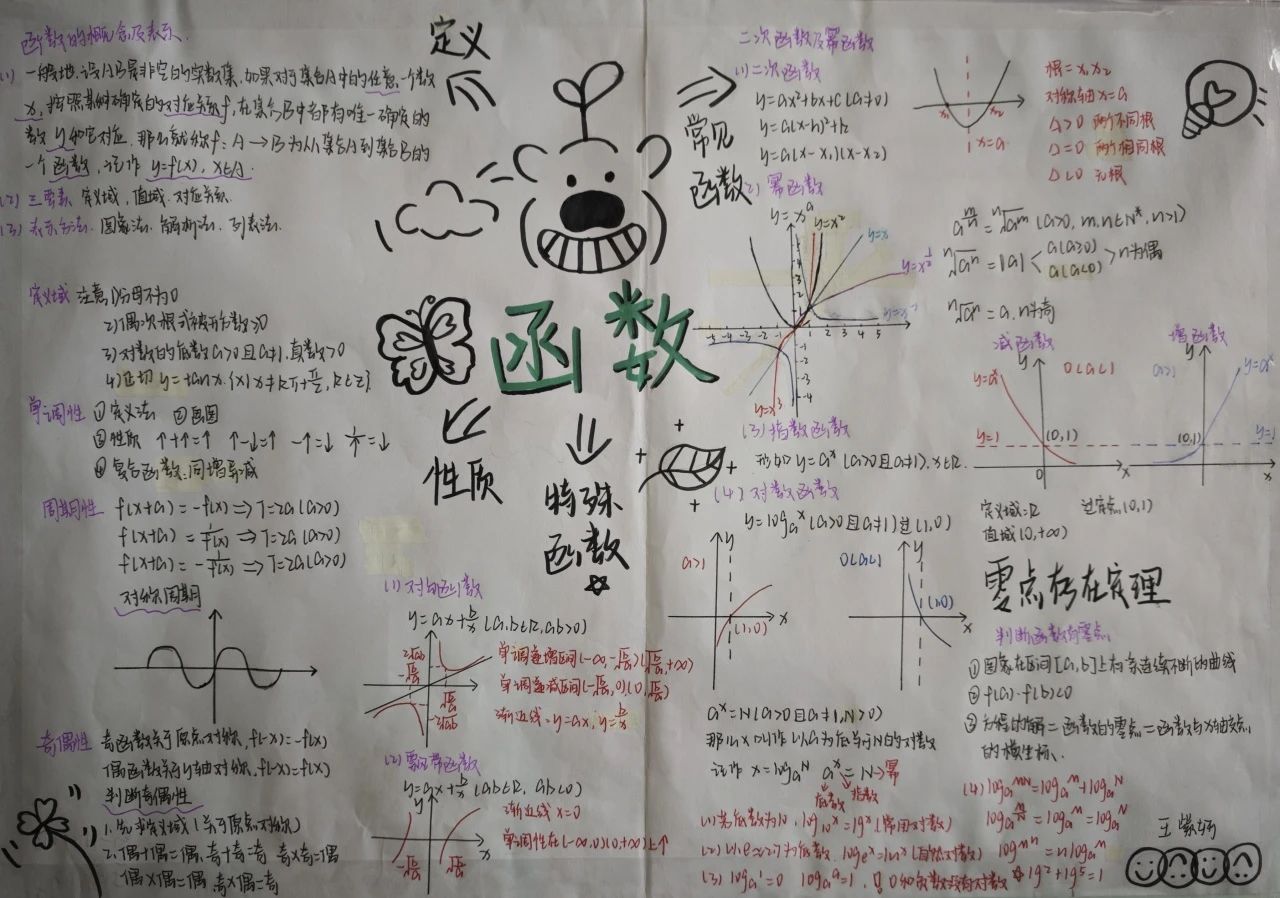 函数的概念及表示
(1) 一般地,设A,B是非空的实数集,如果对于集合A中的任意一个数
x,按照某种确定的对应关系f,在集合B中都有唯一确定的
数y和它对应,那么就称f:A→B为从集合A到集合B的
一个函数,记作 y=f(x), x∈A.
(2) 三要素 定义域,值域.对应关系.
(3) 表示方法.图象法.解析法.列表法.
定义域 注意 1)分母不为0
2)偶次根式被开方数≥0
3)对数的底数a>0且a≠1.真数>0
4)正切y=tanx.{x|x≠kπ+π/2, k∈Z}
单调性 ①定义法 ②画图
③性质 ↑+↑=↑ ↑-↓=↑ -↑=↓ 1/↑=↓
④复合函数:同增异减
周期性 f(x+a)=-f(x)=>T=2a(a>0)
f(x+a)=1/f(x) =>T=2a(a>0)
f(x+a)=-1/f(x) =>T=2a(a>0)
对称周期
奇偶性 奇函数关于原点对称,f(-x)=-f(x)
偶函数关于y轴对称,f(-x)=f(x)
判断奇偶性
1.先求定义域(关于原点对称)
2.偶+偶=偶.奇+奇=奇 奇x奇=偶
偶x偶=偶.奇x偶=奇
定义
函数
性质
特殊
函数
常见
函数
(1) 对勾函数
y=ax+b/x (a,b∈R,ab>0)
2√ab
-2√ab
单调递增区间(-∞,-√b/a)(√b/a,+∞)
单调递减区间(-√b/a,0)(0,√b/a)
渐近线=y=ax,y=b/x
y=ax+b/x (ab∈R, ab<0)
y
x
渐近线 x=0
单调性在(-∞,0)(0,+∞)上↑
二次函数及幂函数
(1)二次函数
y=ax²+bx+c(a≠0)
y=a(x-h)²+k
y=a(x-x₁)(x-x₂)
x₁ x₂
x=a
根=x₁x₂
对称轴x=a
△>0 两个不同根
△=0 两个相同根
△<0 无根
(2) 幂函数
y=xᵃ
y=x²
y=x
y=x^(1/2)
y=x⁻¹
y=x³
-5 -4 -3 -2 -1 1 2 3 4 5
a^(m/n)=ⁿ√aᵐ (a>0, m.n∈N*, n>1)
ⁿ√aⁿ=|a|< a(a≥0) a(a<0) >n为偶
ⁿ√aⁿ=a.n为奇
减函数
y=aˣ
0<a<1
y=1
(0,1)
0
x
y
增函数
a>1
y=aˣ
(0,1)
y=1
x
y
(3)指数函数
形如y=aˣ(a>0且a≠1).x∈R.
定义域=R 过定点(0,1)
值域(0,+∞)
(4) 对数函数
y=logₐˣ(a>0且a≠1)过(1,0)
a>1
y
(1,0)
x
0<a<1
y
(1,0)
x
aˣ=N(a>0且a≠1,N>0)
那么x叫作以a为底的N的对数
记作 x=logₐN aˣ=N→幂
底数 指数
(1)若底数为10,log₁₀ˣ=lgˣ(常用对数)
(2)以e≈2.7为底数 logₑˣ=lnˣ(自然对数)
(3) logₐ¹=0 logₐᵃ=1. 0和负数没有对数 lg²+lg⁵=1
零点存在定理
判断函数有零点
①图象在区间[a,b]上有条连续不断的曲线
②f(a)·f(b)<0
③方程的解=函数的零点=函数与x轴交点
的横坐标.
(4) logₐᴹᴺ=logₐᴹ+logₐᴺ
logₐ^(M/N)=logₐᴹ=logₐᴺ